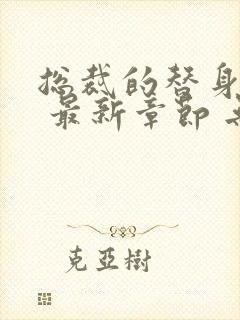 总裁的替身
最新章节
克亚树